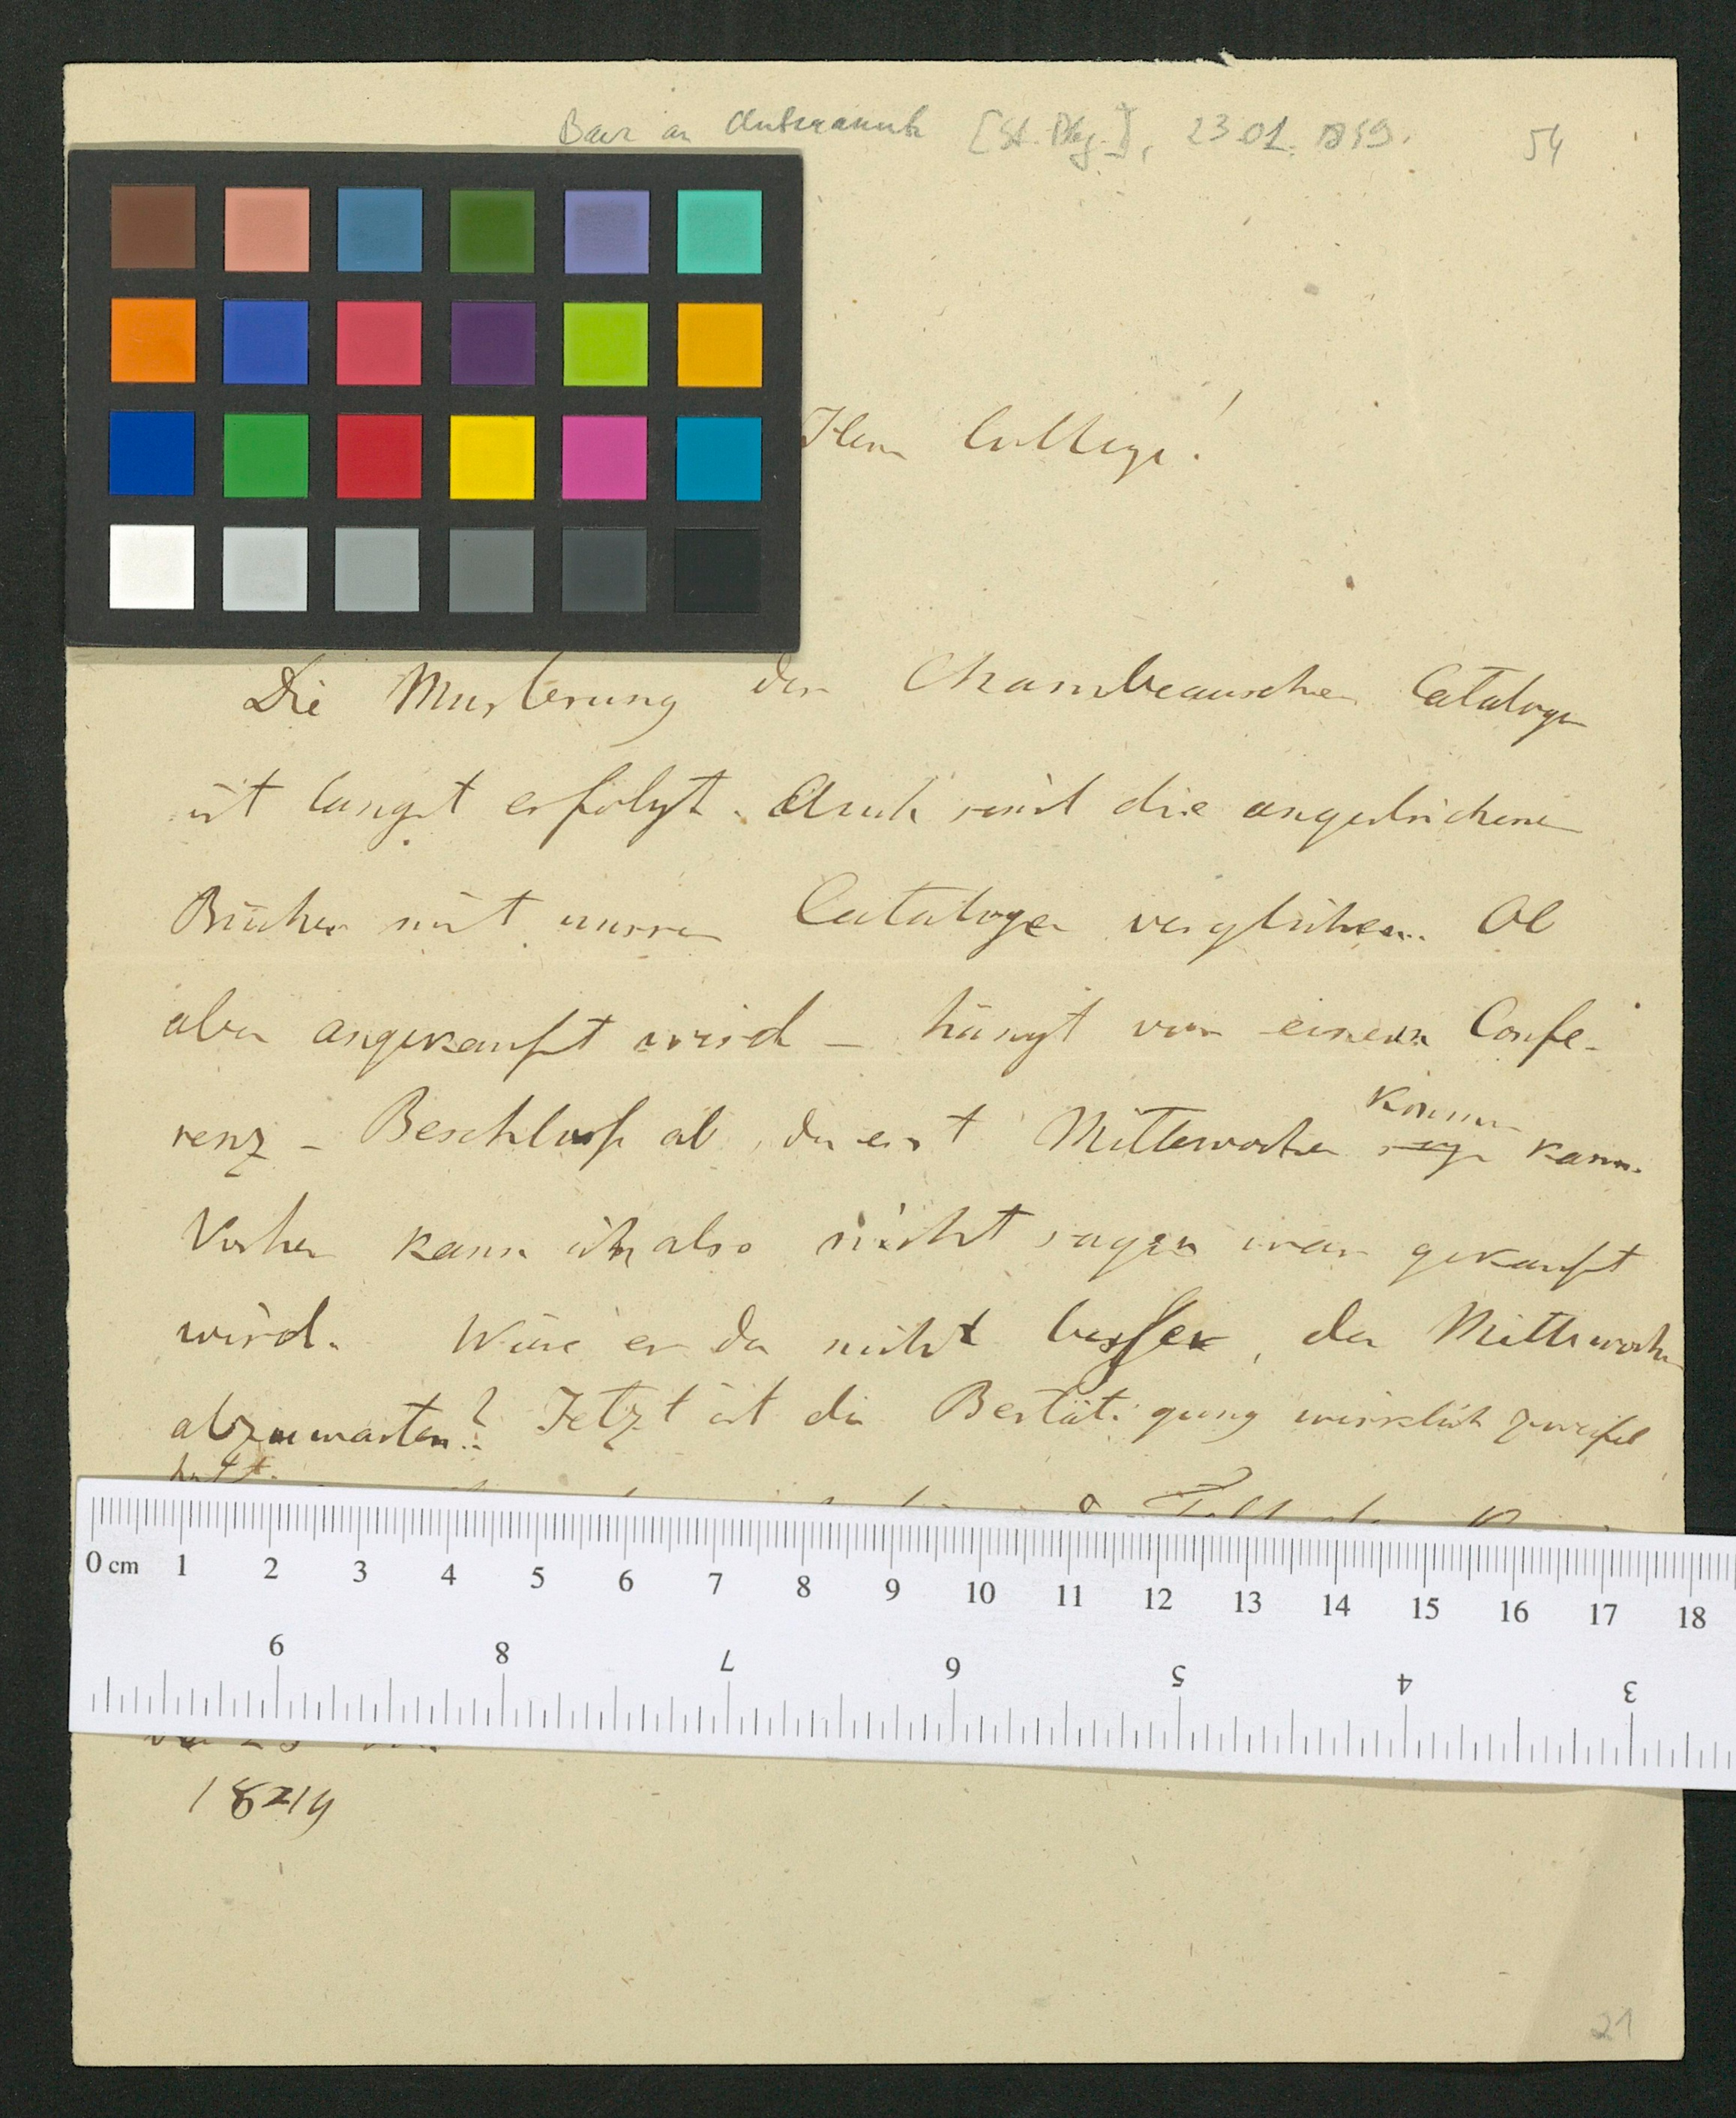 Baer an Unbekannt [St. Pbg.], 23.01.1859. 54
Herr College!
Die Musterung des Chambeauschen Cataloges
ist langst erfolgt. Auch sind die angestrichenen
Bücher mit unsren Catalogen verglichen. Ob
aber angekauft wird – hängt von einem Confe-
renz-Beschluss ab, der erst Mittewochen kommen kann.
Vorher kann ich also nicht sagen was gekauft
wird. Wäre es da nicht besser, den Mittewochen
abzuwarten? Jetzt ist die Bestätigung wirklich zweifel
haft.
0 cm 1 2 3 4 5 6 7 8 9 10 11 12 13 14 15 16 17 18
9 8 7 6 5 4 3
21